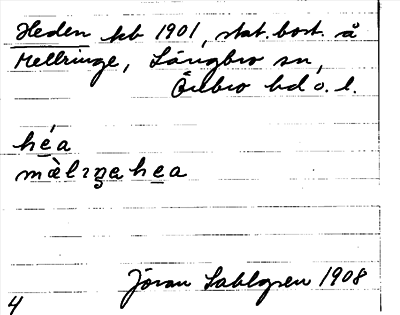 Heden kb 1901, stat. bost. å
Mellringe, Längbro sn,
Örebro hd o. l.
héa
mὰlıŋahea
Jöran Sahlgren 1908
4